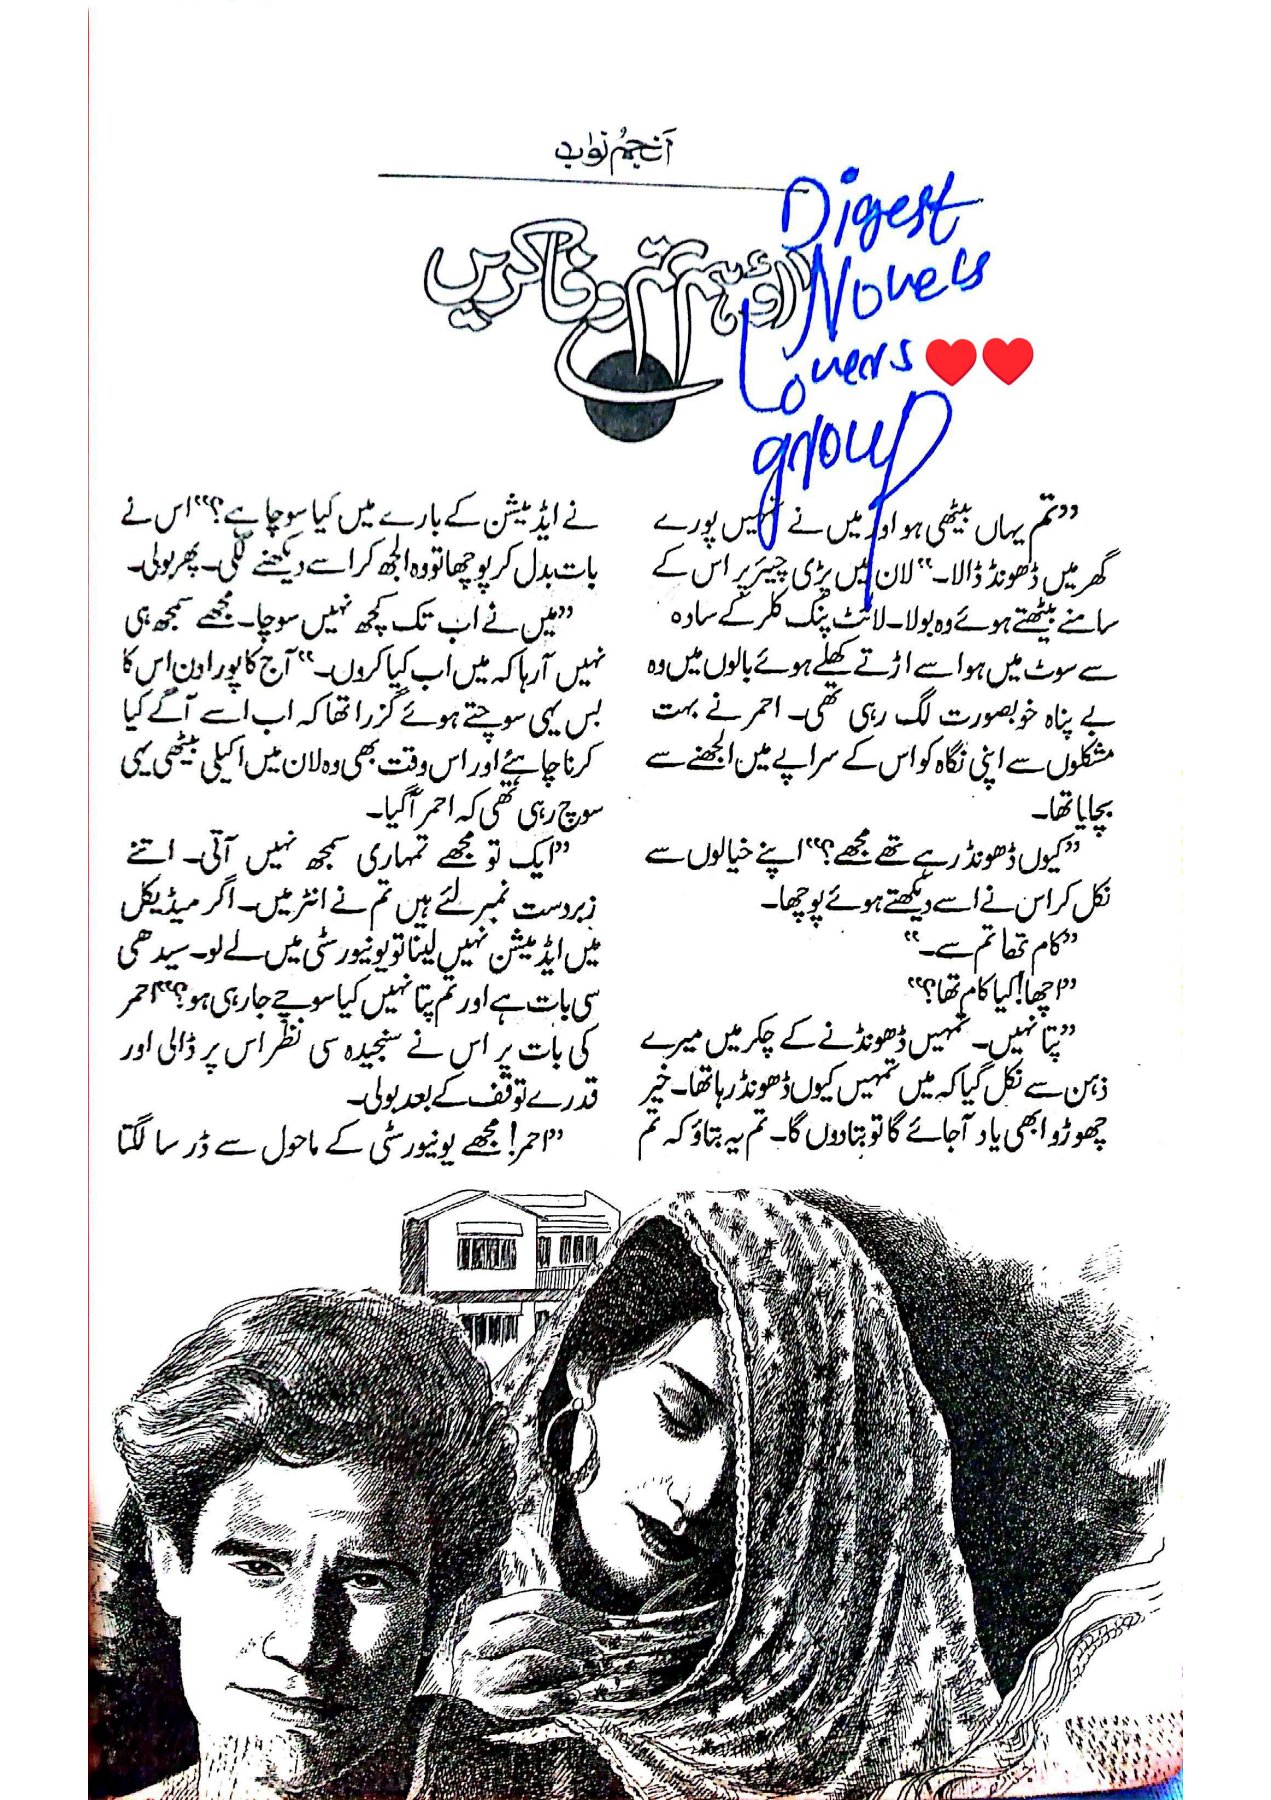 انجم نواب
آؤ ہم تم وفا کریں
Digest
Novels
Lovers ❤️❤️
group
”تم یہاں بیٹھی ہو اور میں نے تمہیں پورے
گھر میں ڈھونڈ ڈالا۔“ لان میں پڑی چیئر پر اس کے
سامنے بیٹھتے ہوئے وہ بولا۔ لائٹ پنک کلر کے سادہ
سے سوٹ میں ہوا سے اڑتے کھلے ہوئے بالوں میں وہ
بے پناہ خوبصورت لگ رہی تھی۔ احمر نے بہت
مشکلوں سے اپنی نگاہ کو اس کے سراپے میں الجھنے سے
بچایا تھا۔
”کیوں ڈھونڈ رہے تھے مجھے؟“ اپنے خیالوں سے
نکل کر اس نے اسے دیکھتے ہوئے پوچھا۔
”کام تھا تم سے۔“
”اچھا! کیا کام تھا؟“
”پتا نہیں۔ تمہیں ڈھونڈنے کے چکر میں میرے
ذہن سے نکل گیا کہ میں تمہیں کیوں ڈھونڈ رہا تھا۔ خیر
چھوڑو ابھی یاد آجائے گا تو بتادوں گا۔ تم یہ بتاؤ کہ تم
نے ایڈمیشن کے بارے میں کیا سوچا ہے؟“ اس نے
بات بدل کر پوچھا تو وہ الجھ کر اسے دیکھنے لگی۔ پھر بولی۔
”میں نے اب تک کچھ نہیں سوچا۔ مجھے سمجھ ہی
نہیں آرہا کہ میں اب کیا کروں۔“ آج کا پورا دن اس کا
بس یہی سوچتے ہوئے گزرا تھا کہ اب اسے آگے کیا
کرنا چاہئے اور اس وقت بھی وہ لان میں اکیلی بیٹھی یہی
سوچ رہی تھی کہ احمر آگیا۔
”ایک تو مجھے تمہاری سمجھ نہیں آتی۔ اتنے
زبردست نمبر لئے ہیں تم نے انٹر میں۔ اگر میڈیکل
میں ایڈمیشن نہیں لینا تو یونیورسٹی میں لے لو۔ سیدھی
سی بات ہے اور تم پتا نہیں کیا سوچے جارہی ہو؟“ احمر
کی بات پر اس نے سنجیدہ سی نظر اس پر ڈالی اور
قدرے توقف کے بعد بولی۔
”احمر! مجھے یونیورسٹی کے ماحول سے ڈر سا لگتا